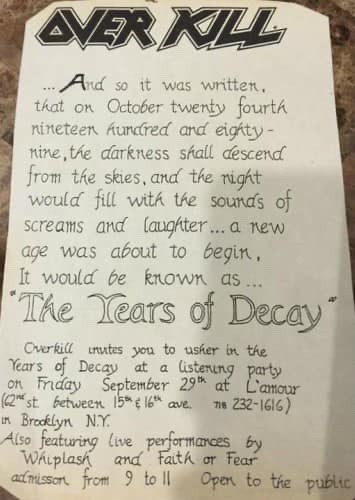 OVER KILL
... And so it was written,
that on October twenty fourth
nineteen hundred and eighty-
nine, the darkness shall descend
from the skies, and the night
would fill with the sounds of
screams and laughter... a new
age was about to begin,
It would be known as ...
"The Years of Decay"
Overkill invites you to usher in the
Years of Decay at a listening party
on Friday September 29th at L'amour
(62nd st. between 15th & 16th ave. 718 232-1616)
in Brooklyn N.Y.
Also featuring live performances by
Whiplash and Faith or Fear
admisson from 9 to 11 Open to the public